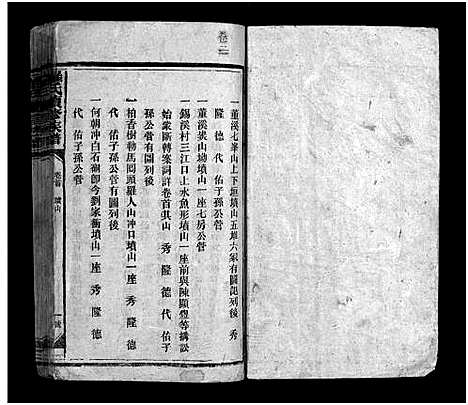 卷二
一董溪七峯山上下垣墳山五堆六家有圖記列後 秀
隆 德 代 佑子孫公管
一董溪炭山坳墳山一座七房公管
一錫溪村三江口上水魚形墳山一座前與陳顯
等搆訟
始蒙斷轉案詞詳卷首其山 秀 隆 德 代 佑子
孫公管有圖列後
一柏香樹勒馬回頭羅人山冲口墳山一座 秀 隆 德
代 佑子孫公管有圖列後
一何朝冲白石湖卽今劉家衝墳山一座 秀 隆 德
代 佑子孫公管
卷首 墳山